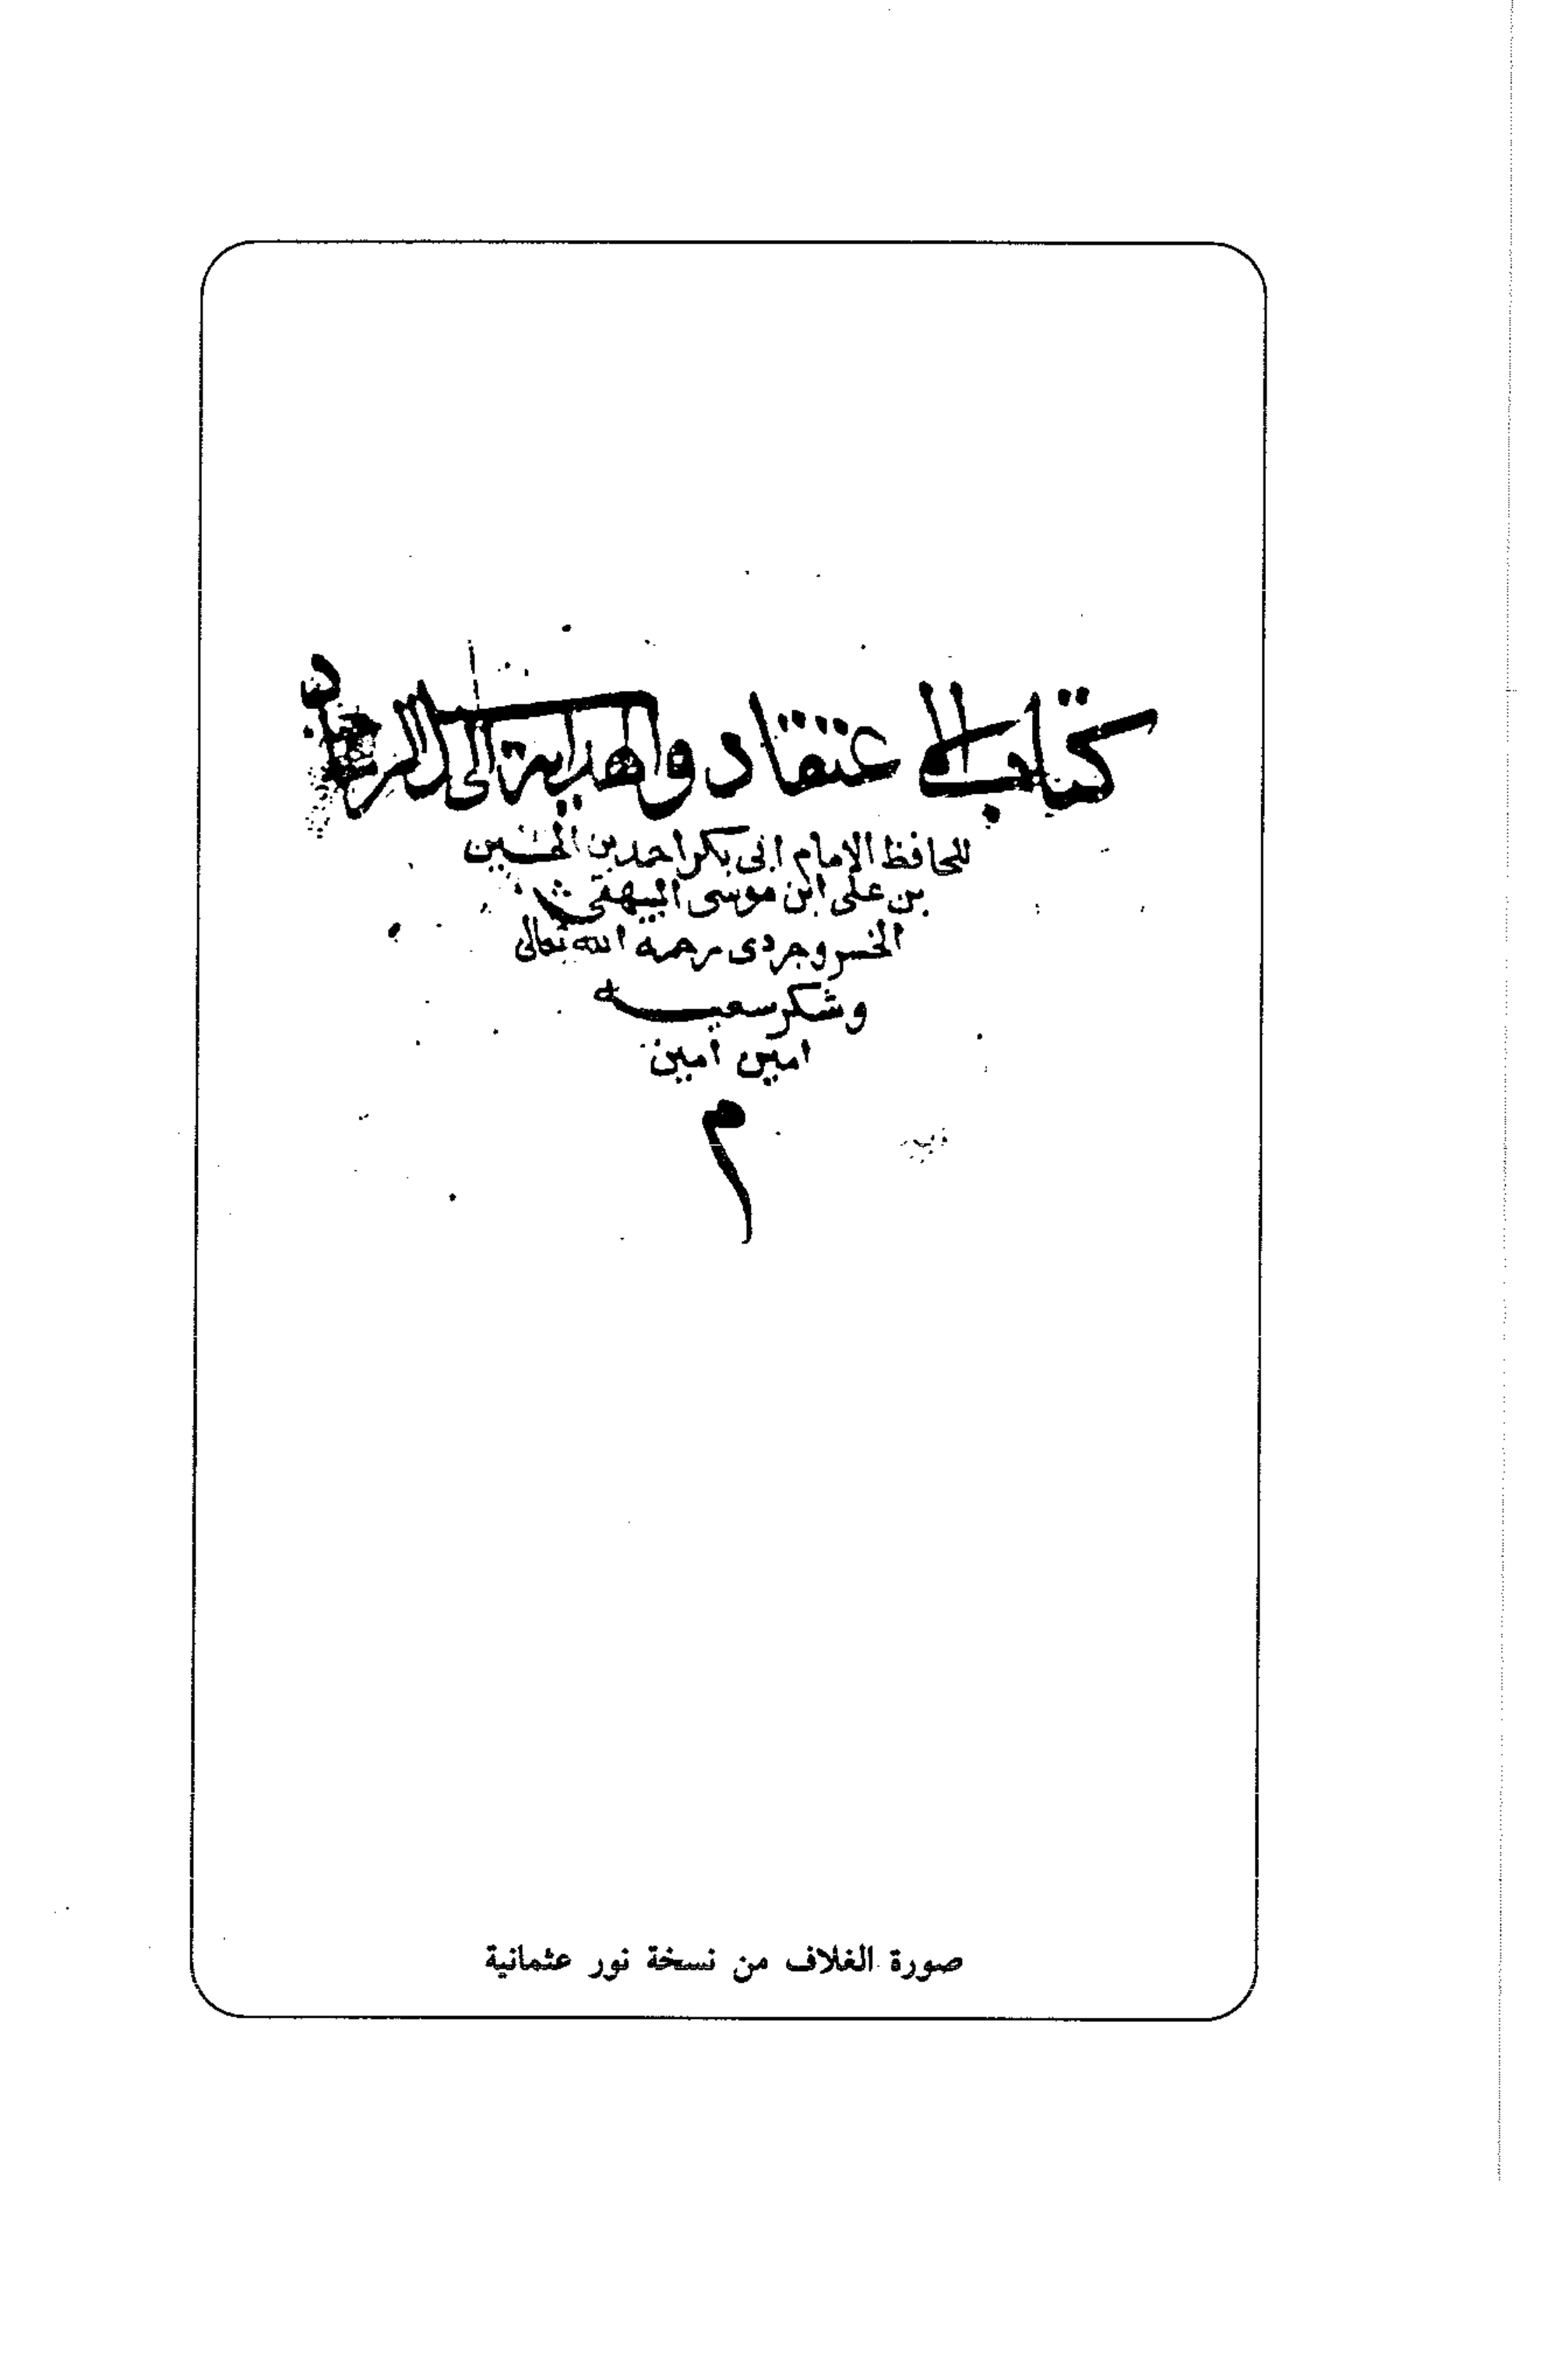 كتاب الاعتقاد والهداية الى الرشاد
للحافظ الامام ابى بكر احمد بن الحسين
بن على ابن موسى البيهقى
الخسروجردى رحمه الله تعالى
وشكر سعيه
امين امين
م
صورة الغلاف من نسخة نور عثمانية